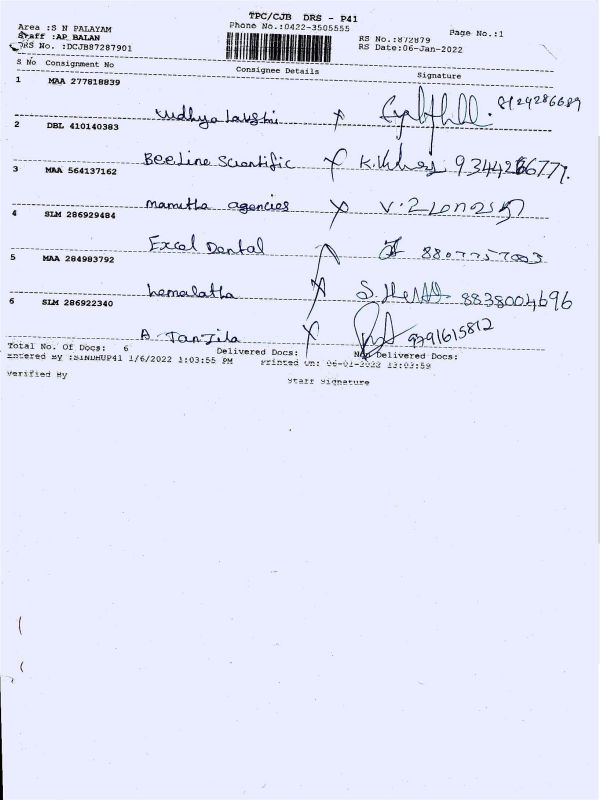 TPC/CJB DRS - P41
Area :S N PALAYAM Phone No.:0422-3505555 Page No.:1
Staff :AP BALAN RS No.:872879
DRS No. :DCJB87287901 RS Date:06-Jan-2022
S No Consignment No Consignee Details Signature
1 MAA 277818839
8124286689
2 DBL 410140383
BeeLine Scientific
3 MAA 564137162
mamitha agencies
4 SLM 286929484
Excel Dental
5 MAA 284983792
hemalatha 8838004696
6 SLM 286922340
A. Tanjila 9791615812
Total No. Of Docs: 6 Delivered Docs: Non Delivered Docs:
Entered By :SINDHUP41 1/6/2022 1:03:55 PM Printed On: 06-01-2022 13:03:59
Verified By Staff Signature